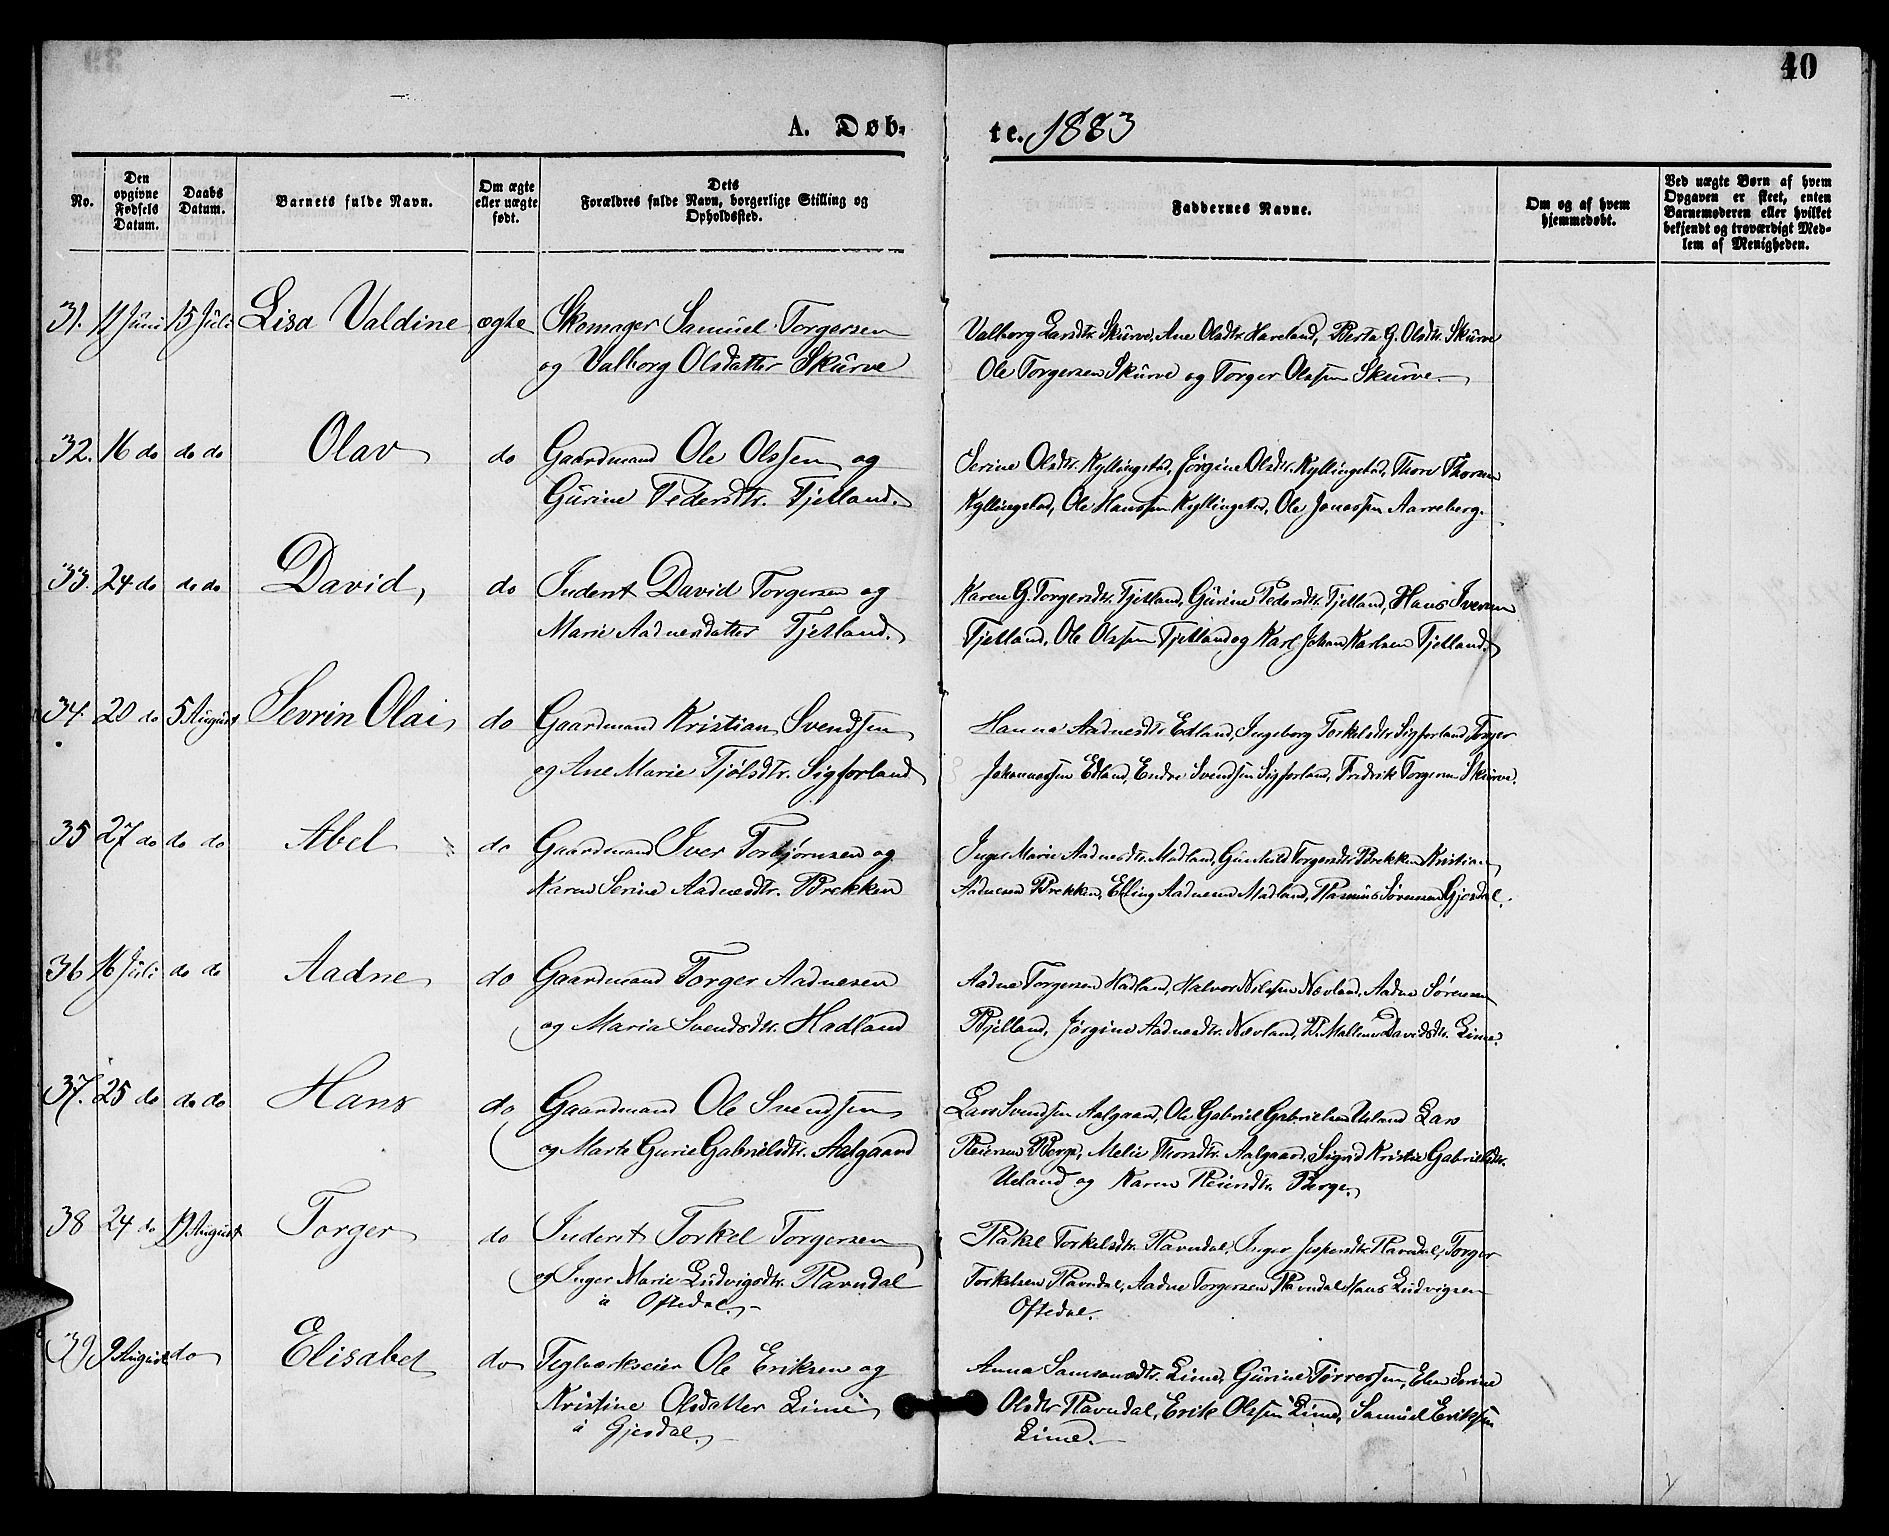 40
A. Døbte. 1883
No.
Den opgivne Fødsels Datum.
Daabs Datum.
Barnets fulde Navn.
Om ægte eller uægte født.
Dets Forældres fulde Navn, borgerlige Stilling og Opholdssted.
Faddernes Navne.
Om og af hvem hjemmedøbt.
Ved uægte Børn af hvem Opgaven er skeet, enten Barnemoderen eller hvilket bekjendt og troværdigt Medlem af Menigheden.
31. 11 Juni 15 Juli Lisa Valdine ægte Skomager Samuel Torgersen
og Valborg Olsdatter Skurve
Valborg Larsdtr. Skurve, Ane Olsdtr. Haveland, Berta G. Olsdtr. Skurve
Ole Torgersen Skurve og Torger Olsen Skurve.
32. 16 do do do Olav do Gaardmand Ole Olssen og
Gurine Pedersdtr. Tjetland.
Serine Olsdtr. Kyllingstad, Jörgine Olsdtr. Kyllingstad, Thore Thorsen
Kyllingstad, Ole Hanssen Kyllingstad, Ole Jonassen Aarreberg.
33. 24 do do do David, do Inderst David Torgersen og
Marie Aadnesdatter Tjetland.
Karen G. Torgersdtr. Tjetland, Gurine Pedersdtr. Tjetland, Hans Iversen
Tjetland, Ole Olssen Tjetland og Karl Johan Karlsen Tjetland.
34. 20 do 5 August Sevrin Olai do Gaardmand Kristian Svendsen
og Ane Marie Tjølsdtr. Sigforland
Hanna Aadnesdtr. Edland, Ingeborg Torkelsdtr. Sigforland, Torger
Johannessen Edland, Endre Svendsen Sigforland, Fredrik Torgersen Skurve.
35 27 do do do Abel do Gaardmand Iver Torbjørnsen og
Karen Serine Aadnesdtr. Brekken
Inger Marie Aadnesdtr. Madland, Gunhild Torgersdtr. Brekken Kristian
Aadnesen Brekken, Elling Aadnesen Madland, Rasmus Sørensen Gjesdal.
36 16 Juli do do Aadne do Gaardmand Torger Aadnesen
og Maria Svendsdtr. Hadland
Aadne Torgersen Hadland, Halvor Nilssen Nævland, Aadne Sørensen
Bjelland, Jørgine Aadnesdtr. Nævland, B. Mallene Davidsdtr. Lime.
37. 25 do do do Hans do Gaardmand Ole Svendsen
og Marte Gurie Gabrielsdtr. Aalgaard
Lars Svendsen Aalgaard, Ole Gabriel Gabrielsen Ueland Lars
Reiersen Berge, Melie Thorsdtr. Aalgaard, Sigrid Kristie Gabrielsdtr.
Ueland og Karen Reiersdtr. Berge.
38 24 do 19 August Torger do Inderst Torkel Torgersen
og Inger Marie Ludvigsdtr. Ravndal
a Oftedal.
Rakel Torkelsdtr. Ravndal, Inger Jespersdtr. Ravndal, Torger
Torkelsen Ravndal, Aadne Torgersen Ravndal Hans Ludvigsen
Oftedal.
39 9 August do Elisabet do Teglværkseier Ole Eriksen og
Kristine Olsdatter Lime
a Gjesdal.
Anna Samsonsdtr. Lime, Gurine Tørressen, Elen Serine
Olsdtr. Ravndal, Erik Olssen Lime, Samuel Erikssen
Lime.